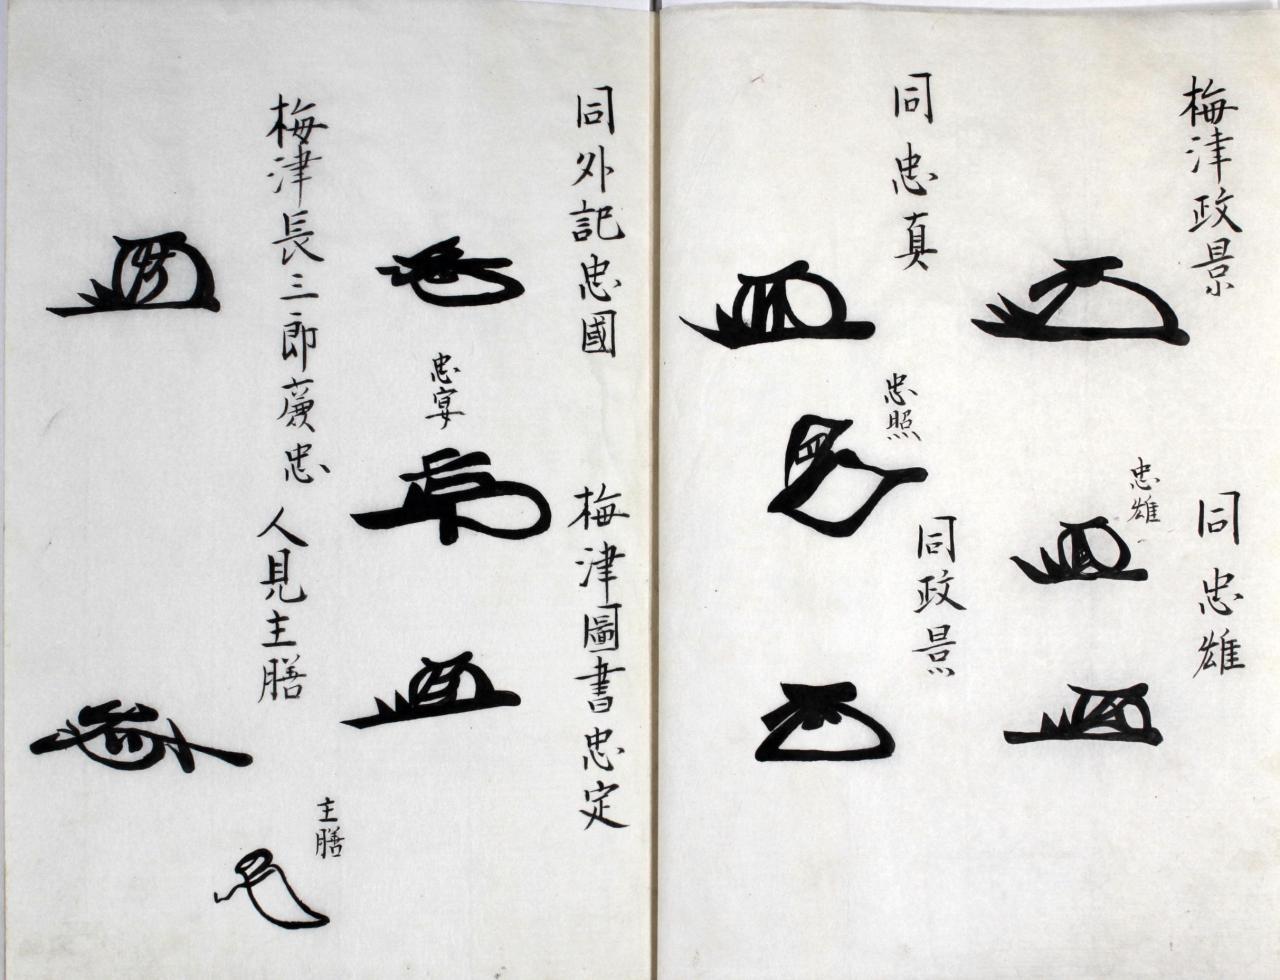 梅津政景
同忠雄
忠雄
同忠真
忠照
同政景
同外記忠國
梅津圖書忠定
忠宴
梅津長三郎廣忠
人見主膳
主膳